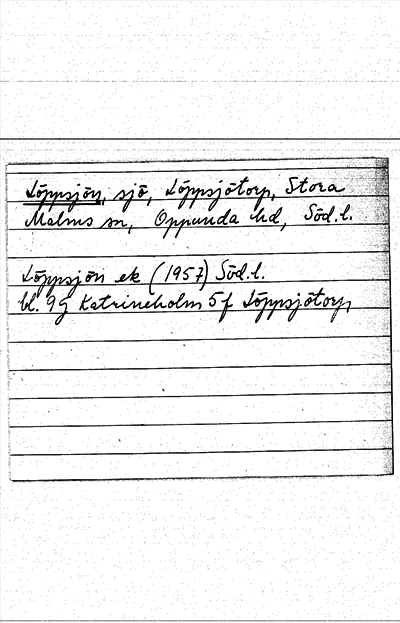 Löppsjön, sjö, Löppsjötorp, Stora
Malms sn, Oppunda hd, Söd.l.
Löppsjön ek (1957) Söd.l.
bl. 9g Katrineholm 5f Löppsjötorp,